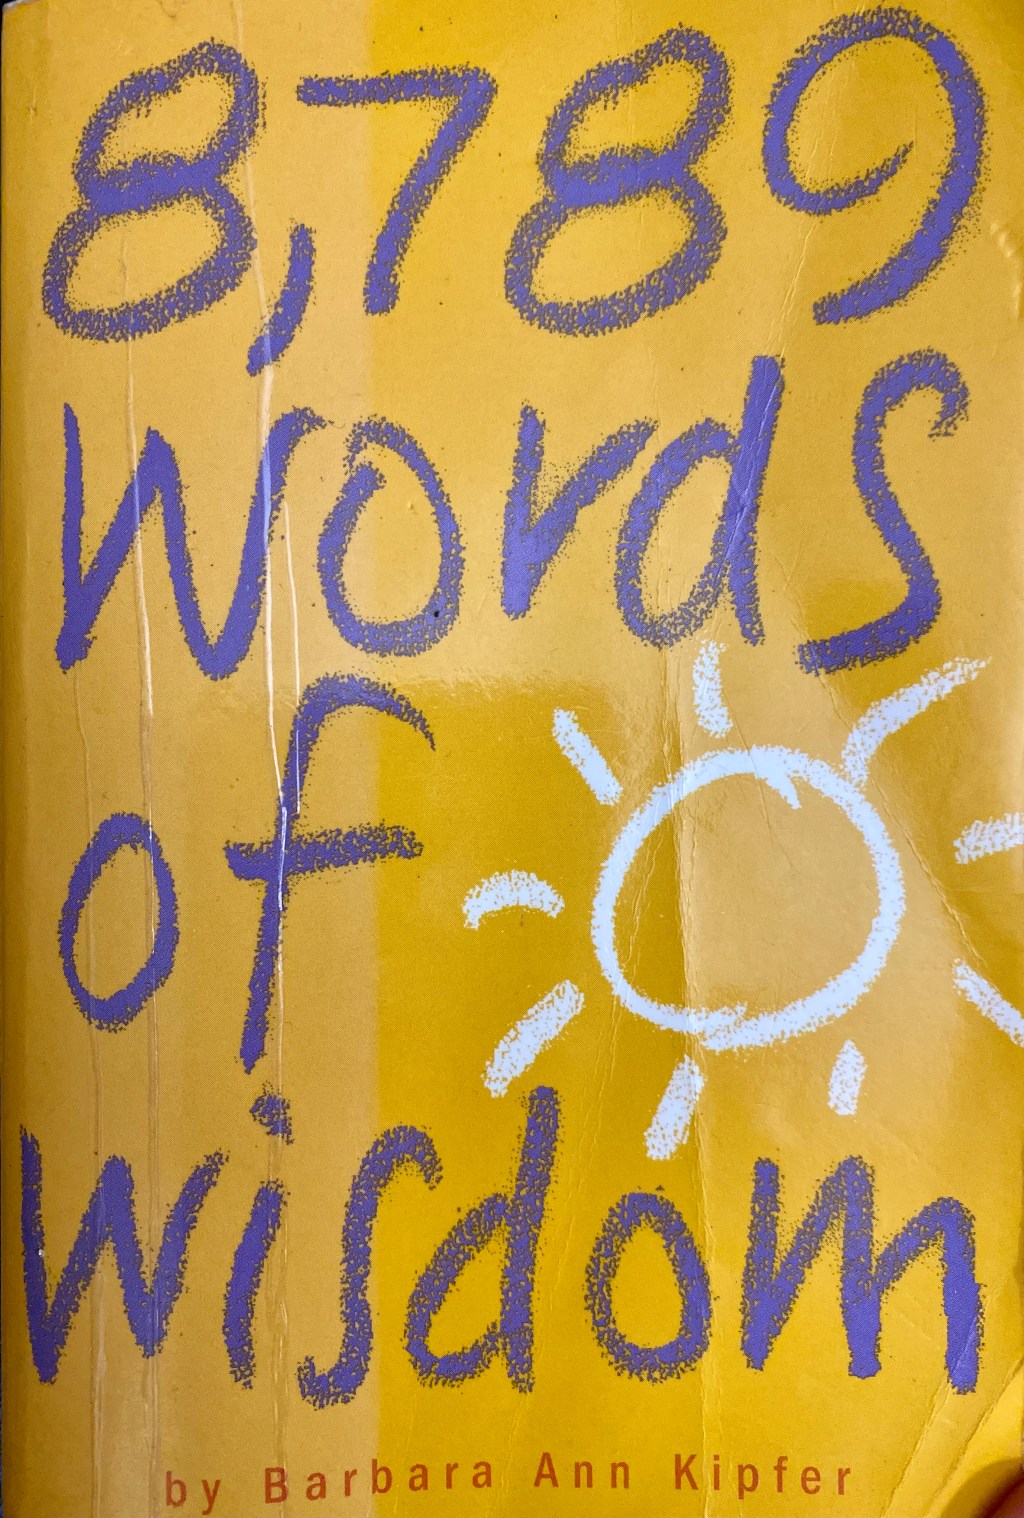 8,789
words
of
wisdom
by Barbara Ann Kipfer